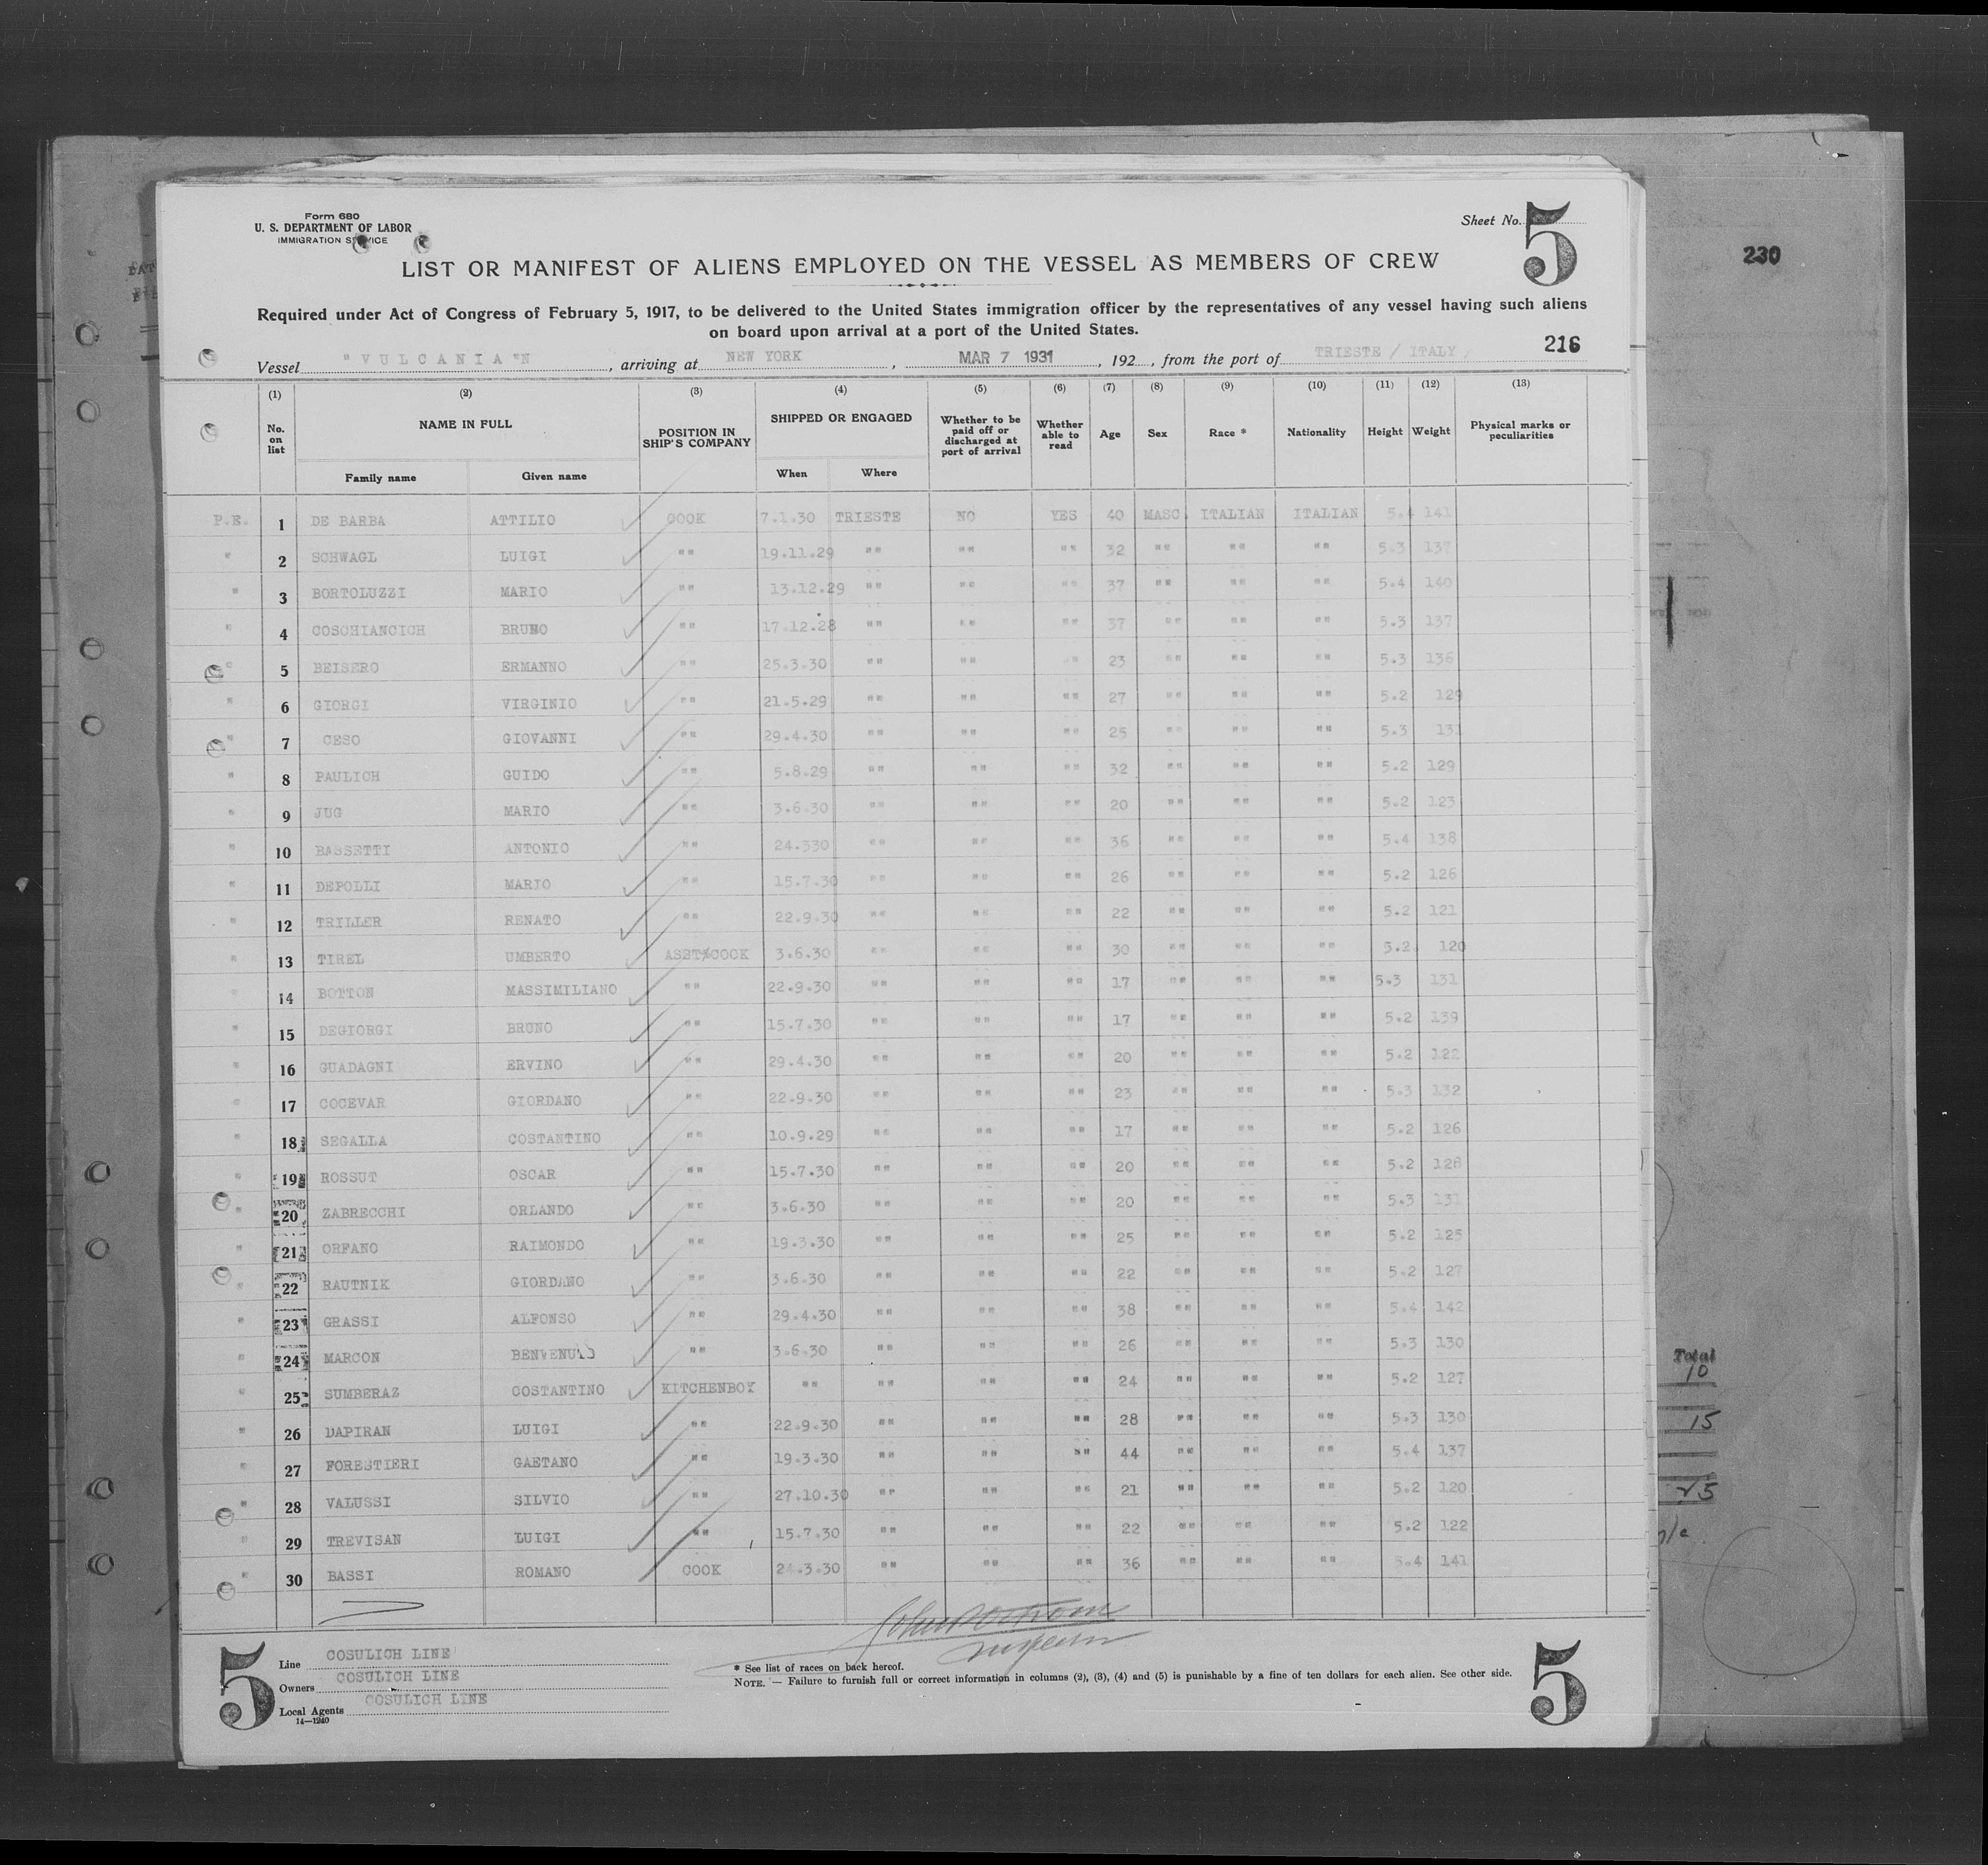 Form 680
U. S. DEPARTMENT OF LABOR
IMMIGRATION SERVICE
Sheet No. 5
LIST OR MANIFEST OF ALIENS EMPLOYED ON THE VESSEL AS MEMBERS OF CREW
Required under Act of Congress of February 5, 1917, to be delivered to the United States immigration officer by the representatives of any vessel having such aliens
on board upon arrival at a port of the United States.
230
216
Vessel "VULCANIA"N, arriving at NEW YORK, MAR 7 1931, 192, from the port of TRIESTE / ITALY,
(1) (2) (3) (4) (5) (6) (7) (8) (9) (10) (11) (12) (13)
No. on list NAME IN FULL POSITION IN SHIP'S COMPANY SHIPPED OR ENGAGED Whether to be paid off or discharged at port of arrival Whether able to read Age Sex Race * Nationality Height Weight Physical marks or peculiarities
Family name Given name When Where
P.E. 1 DE BARBA ATTILIO COOK 7.1.30 TRIESTE NO YES 40 MASC. ITALIAN ITALIAN 5.4 141
" 2 SCHWAGL LUIGI "" 19.11.29 "" "" "" 32 "" "" "" 5.3 137
" 3 BORTOLUZZI MARIO "" 13.12.29 "" "" "" 37 "" "" "" 5.4 140
" 4 COSCHIANCICH BRUNO "" 17.12.28 "" "" "" 37 "" "" "" 5.3 137
" 5 BEISERO ERMANNO "" 25.3.30 "" "" "" 23 "" "" "" 5.3 136
" 6 GIORGI VIRGINIO "" 21.5.29 "" "" "" 27 "" "" "" 5.2 129
" 7 CESO GIOVANNI "" 29.4.30 "" "" "" 25 "" "" "" 5.3 131
" 8 PAULICH GUIDO "" 5.8.29 "" "" "" 32 "" "" "" 5.2 129
" 9 JUG MARIO "" 3.6.30 "" "" "" 20 "" "" "" 5.2 123
" 10 BASSETTI ANTONIO "" 24.330 "" "" "" 36 "" "" "" 5.4 138
" 11 DEPOLLI MARIO "" 15.7.30 "" "" "" 26 "" "" "" 5.2 126
" 12 TRILLER RENATO "" 22.9.30 "" "" "" 22 "" "" "" 5.2 121
" 13 TIREL UMBERTO ASST/COOK 3.6.30 "" "" "" 30 "" "" "" 5.2 120
" 14 BOTTON MASSIMILIANO "" 22.9.30 "" "" "" 17 "" "" "" 5.3 131
" 15 DEGIORGI BRUNO "" 15.7.30 "" "" "" 17 "" "" "" 5.2 139
" 16 GUADAGNI ERVINO "" 29.4.30 "" "" "" 20 "" "" "" 5.2 122
" 17 COCEVAR GIORDANO "" 22.9.30 "" "" "" 23 "" "" "" 5.3 132
" 18 SEGALLA COSTANTINO "" 10.9.29 "" "" "" 17 "" "" "" 5.2 126
" 19 ROSSUT OSCAR "" 15.7.30 "" "" "" 20 "" "" "" 5.2 128
" 20 ZABRECCHI ORLANDO "" 3.6.30 "" "" "" 20 "" "" "" 5.3 131
" 21 ORFANO RAIMONDO "" 19.3.30 "" "" "" 25 "" "" "" 5.2 125
" 22 RAUTNIK GIORDANO "" 3.6.30 "" "" "" 22 "" "" "" 5.2 127
" 23 GRASSI ALFONSO "" 29.4.30 "" "" "" 38 "" "" "" 5.4 142
" 24 MARCON BENVENUTO "" 3.6.30 "" "" "" 26 "" "" "" 5.3 130
" 25 SUMBERAZ COSTANTINO KITCHENBOY "" "" "" "" 24 "" "" "" 5.2 127
" 26 DAPIRAN LUIGI "" 22.9.30 "" "" "" 28 "" "" "" 5.3 130
" 27 FORESTIERI GAETANO "" 19.3.30 "" "" "" 44 "" "" "" 5.4 137
" 28 VALUSSI SILVIO "" 27.10.30 "" "" "" 21 "" "" "" 5.2 120
" 29 TREVISAN LUIGI "" 15.7.30 "" "" "" 22 "" "" "" 5.2 122
" 30 BASSI ROMANO COOK 24.3.30 "" "" "" 36 "" "" "" 5.4 141
Total
10
15
25
5
Line COSULICH LINE
Owners COSULICH LINE
Local Agents COSULICH LINE
14—1240
* See list of races on back hereof.
NOTE. — Failure to furnish full or correct information in columns (2), (3), (4) and (5) is punishable by a fine of ten dollars for each alien. See other side.
5